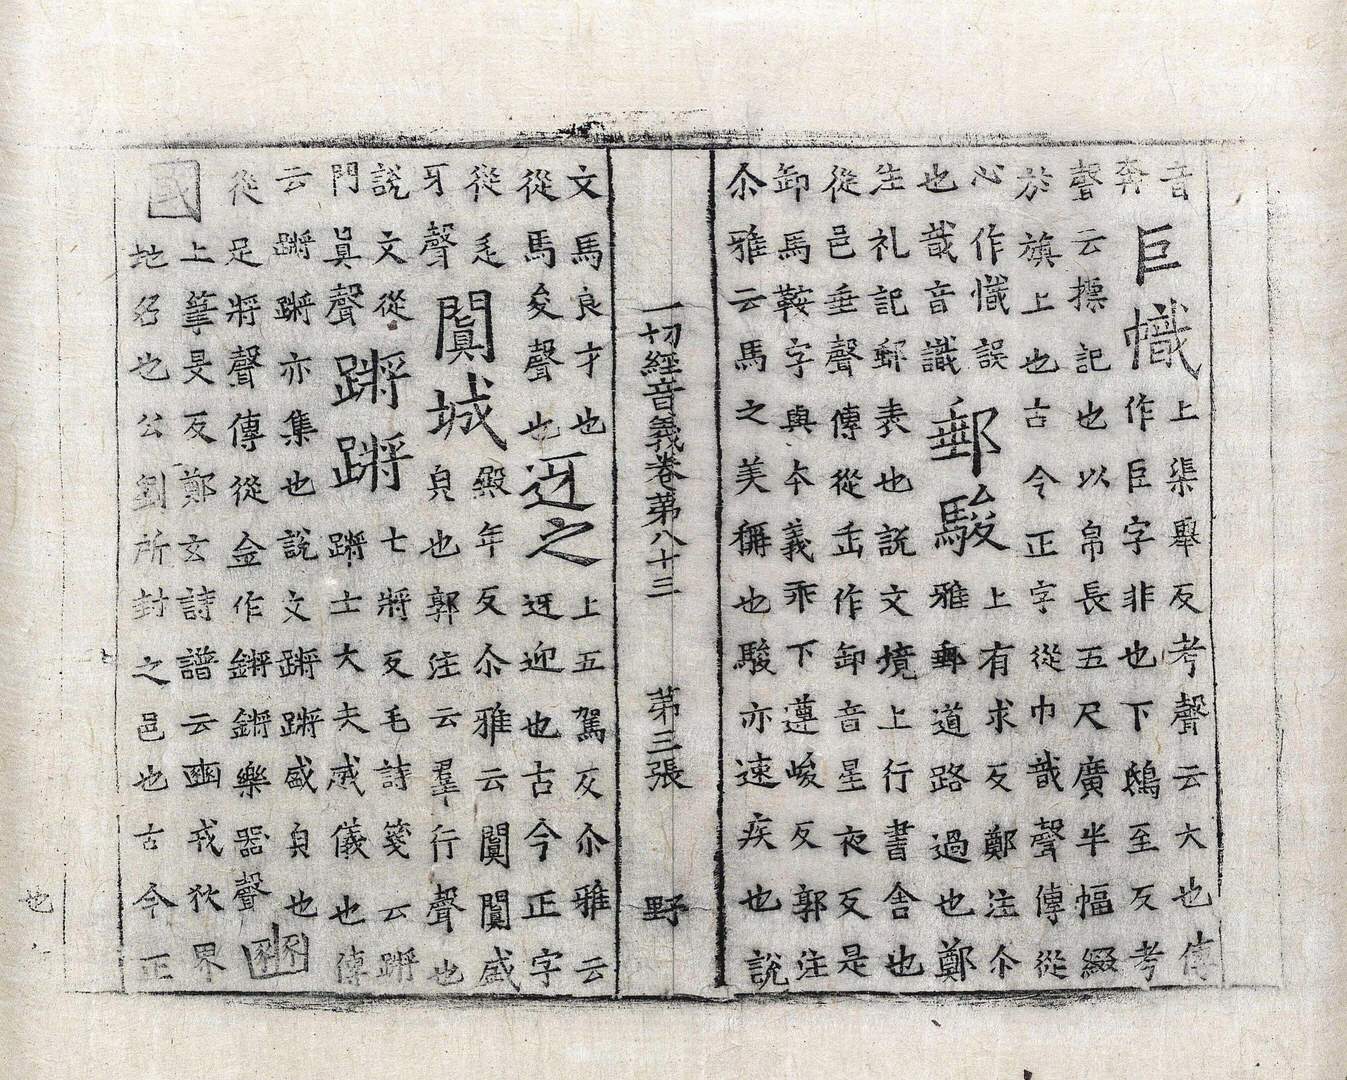 音
奔
巨幟
上渠舉反考聲云大也傳
作巨字非也下鴟至反考
聲云摽記也以帛長五尺廣半幅綴
於旗上也古今正字從巾戠聲傳從
心作懺誤
也戠音識
郵駿
上有求反鄭注尒
雅郵道路過也鄭
注礼記郵表也說文境上行書舍也
從邑垂聲傳從缶作卸音星夜反是
卸馬鞍字與夲義乖下遵峻反郭注
尒雅云馬之美稱也駿亦速疾也說
一切經音義卷第八十三 第三張 野
文馬良才也
從馬夋聲也
迓之
上五駕反尒雅云
迓迎也古今正字
從辵
牙聲
闐城
殿年反尒雅云闐闐盛
皃也郭注云羣行聲也
說文從
門眞聲
蹡蹡
七將反毛詩箋云蹡
蹡士大夫威儀也傳
云蹡蹡亦集也說文蹡蹡盛皃也
從足將聲傳從金作鏘鏘樂器聲
豳
國
上筆旻反鄭玄詩譜云豳戎狄界
地名也公劉所封之邑也古今正
也